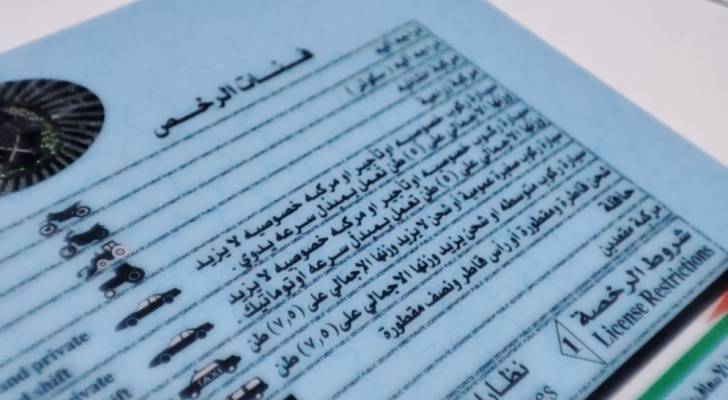 فئات الرخص
دراجة آلية
دراجة آلية (سكوتر)
مركبة إنشائية
مركبة زراعية
سيارة ركوب خصوصية أو تأجير أو مركبة خصوصية لا يزيد
وزنها الإجمالي على (٥) طن تعمل بمبدل سرعة يدوي
سيارة ركوب خصوصية أو تأجير أو مركبة خصوصية لا يزيد
وزنها الإجمالي على (٥) طن تعمل بمبدل سرعة أوتوماتيك
سيارة ركوب صغيرة عمومية أو شحن لا يزيد وزنها الإجمالي على (٧,٥) طن
سيارة ركوب متوسطة أو شحن يزيد وزنها الإجمالي على (٧,٥) طن
شحن قاطرة ومقطورة أو رأس قاطر ونصف مقطورة
حافلة
مركبة مقعدين
شروط الرخصة
License Restrictions
1
نظارات
and private
shift
private
shift
TAXI